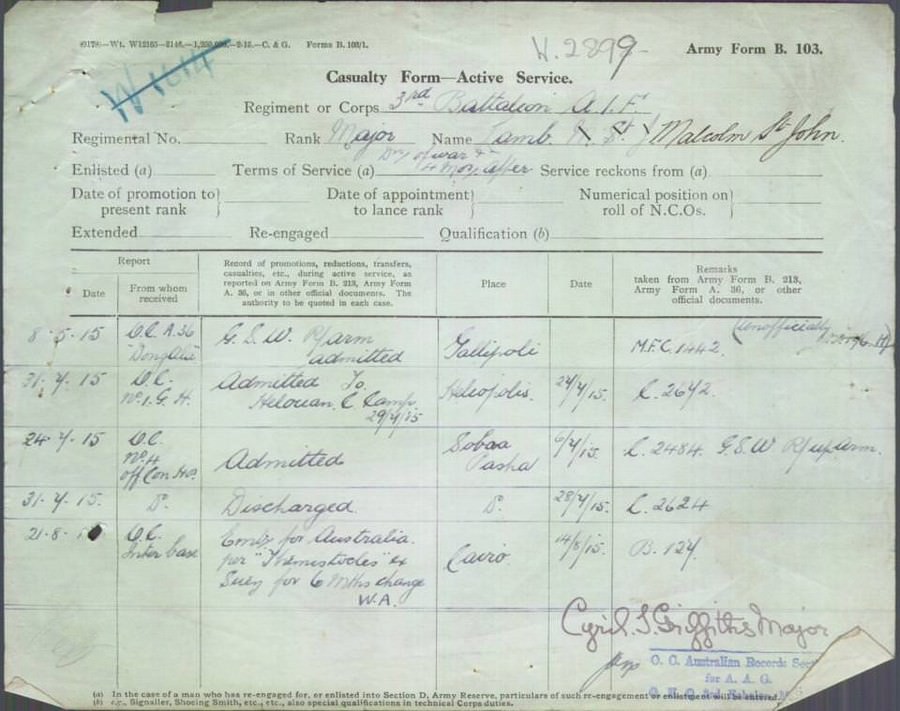 Army Form B. 103.
Forms B. 103/1.
W. 2899
Casualty Form—Active Service.
Regiment or Corps 3rd Battalion A.I.F.
Regimental No. Rank Major Name Lamb. Malcolm St John.
Enlisted (a) Terms of Service (a) Service reckons from (a)
Date of promotion to } present rank
Date of appointment } to lance rank
Numerical position on } roll of N.C.Os.
Extended Re-engaged Qualification (b)
Report
Date
From whom received
Record of promotions, reductions, transfers,
casualties, etc., during active service, as
reported on Army Form B. 213, Army Form
A. 36, or in other official documents. The
authority to be quoted in each case.
Place
Date
Remarks
taken from Army Form B. 213,
Army Form A. 36, or other
official documents.
8-5-15 O.C. A.36 G.S.W. R/arm Gallipoli M.F.C. 1442. (Unofficially
admitted
31.7.15 O.C. Admitted To Heliopolis. 29/7/15. C. 2672.
No.1.G.H. Helouan C Camp
29/7/15
24.7.15 O.C. Admitted Sobaa 6/7/15. C. 2484. G.S.W R/up arm.
No.4 Pasha
off Con Hos.
31.7.15. Do. Discharged. Do. 28/7/15. C. 2624
21.8. O.C. Emb for Australia. Cairo. 14/8/15. B. 127.
Inter base per "Themistocles" ex
Suez for 6 Mths change
W.A.
Cyril. T. Griffiths Major
O. C. Australian Records Sect
for A. A. G.
(a) In the case of a man who has re-engaged for, or enlisted into Section D, Army Reserve, particulars of such re-engagement or enlistment will be entered.
(b) e.g., Signaller, Shoeing Smith, etc., etc., also special qualifications in technical Corps duties.